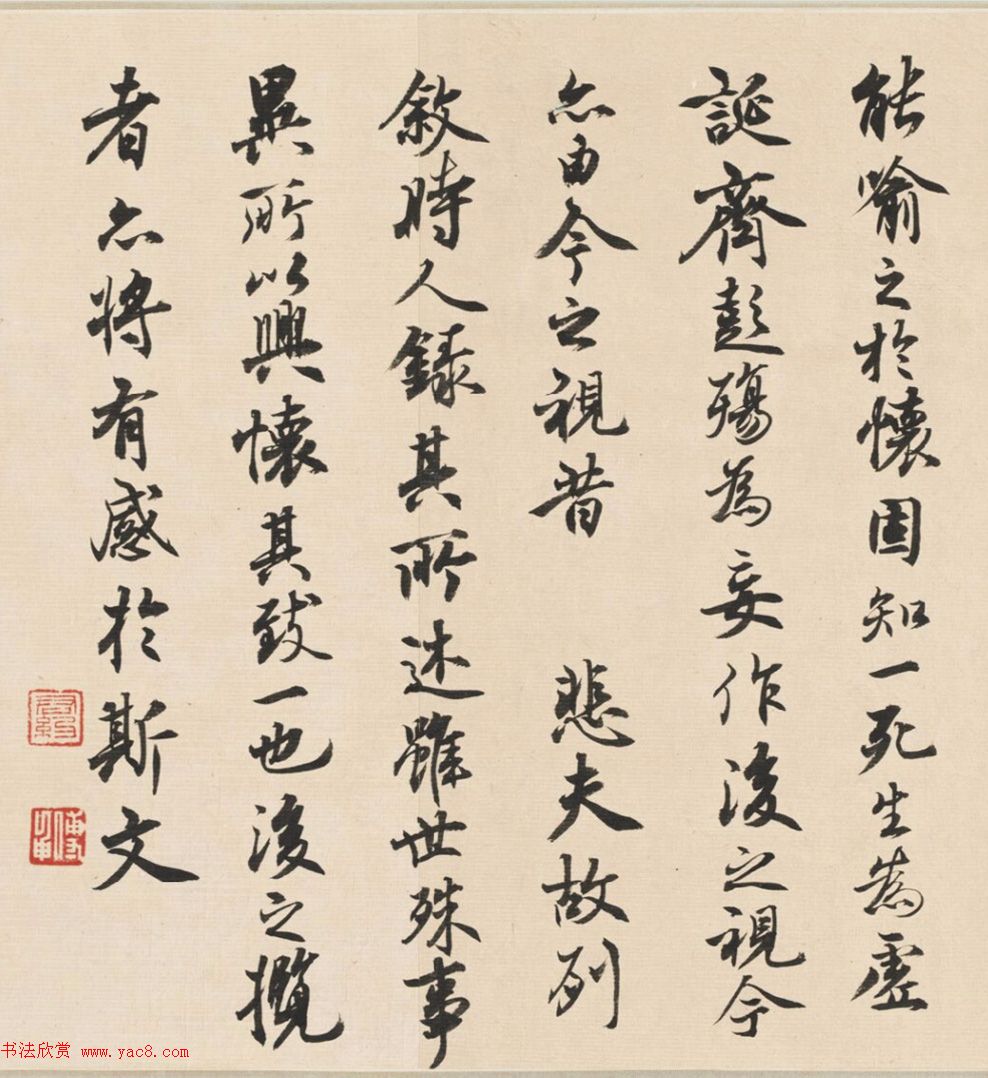 能喻之於懷固知一死生為虛
誕齊彭殤為妄作後之視今
亦由今之視昔 悲夫故列
敘時人錄其所述雖世殊事
異所以興懷其致一也後之攬
者亦將有感於斯文
书法欣赏 www.yac8.com